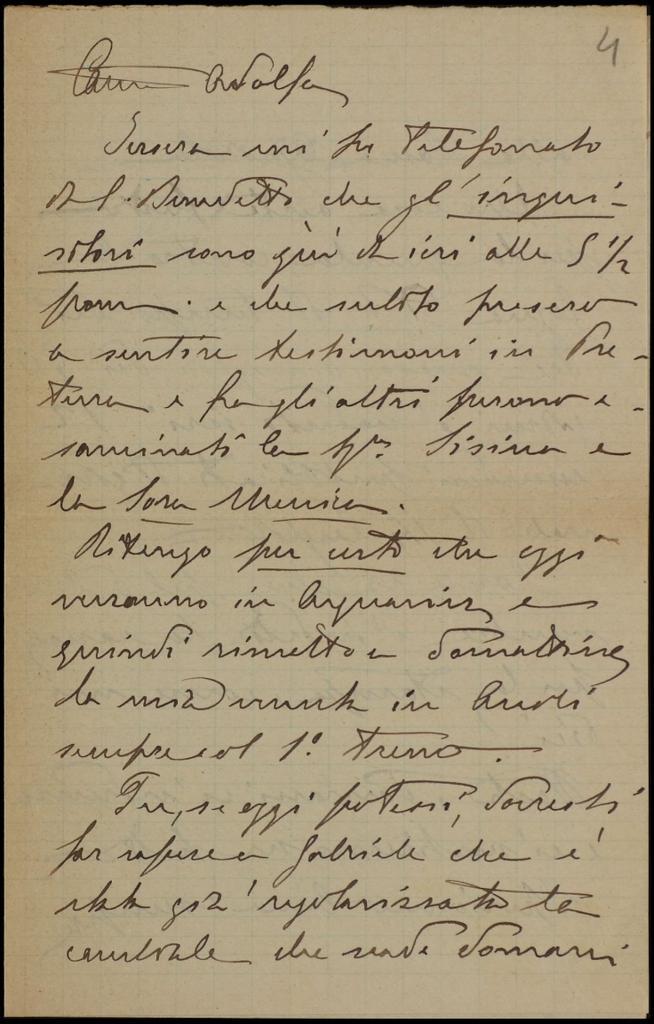 4
Caro Adolfo
Iersera mi fu telefonato
da S. Benedetto che gl'inqui-
sitori sono giù da ieri alle 5 1/2
pom. e che subito presero
a sentire testimoni in Pre-
tura e fra gli altri furono e-
saminati la Sig.ra Sisina e
la Sora Menica.
Ritengo per certo che oggi
verranno in Acquaviva e
quindi rimetto a domattina
la mia venuta in Ascoli
sempre col 1º treno.
Tu, se oggi potessi, dovresti
far sapere a Gabriele che è
stata già regolarizzata la
cambiale che scade domani